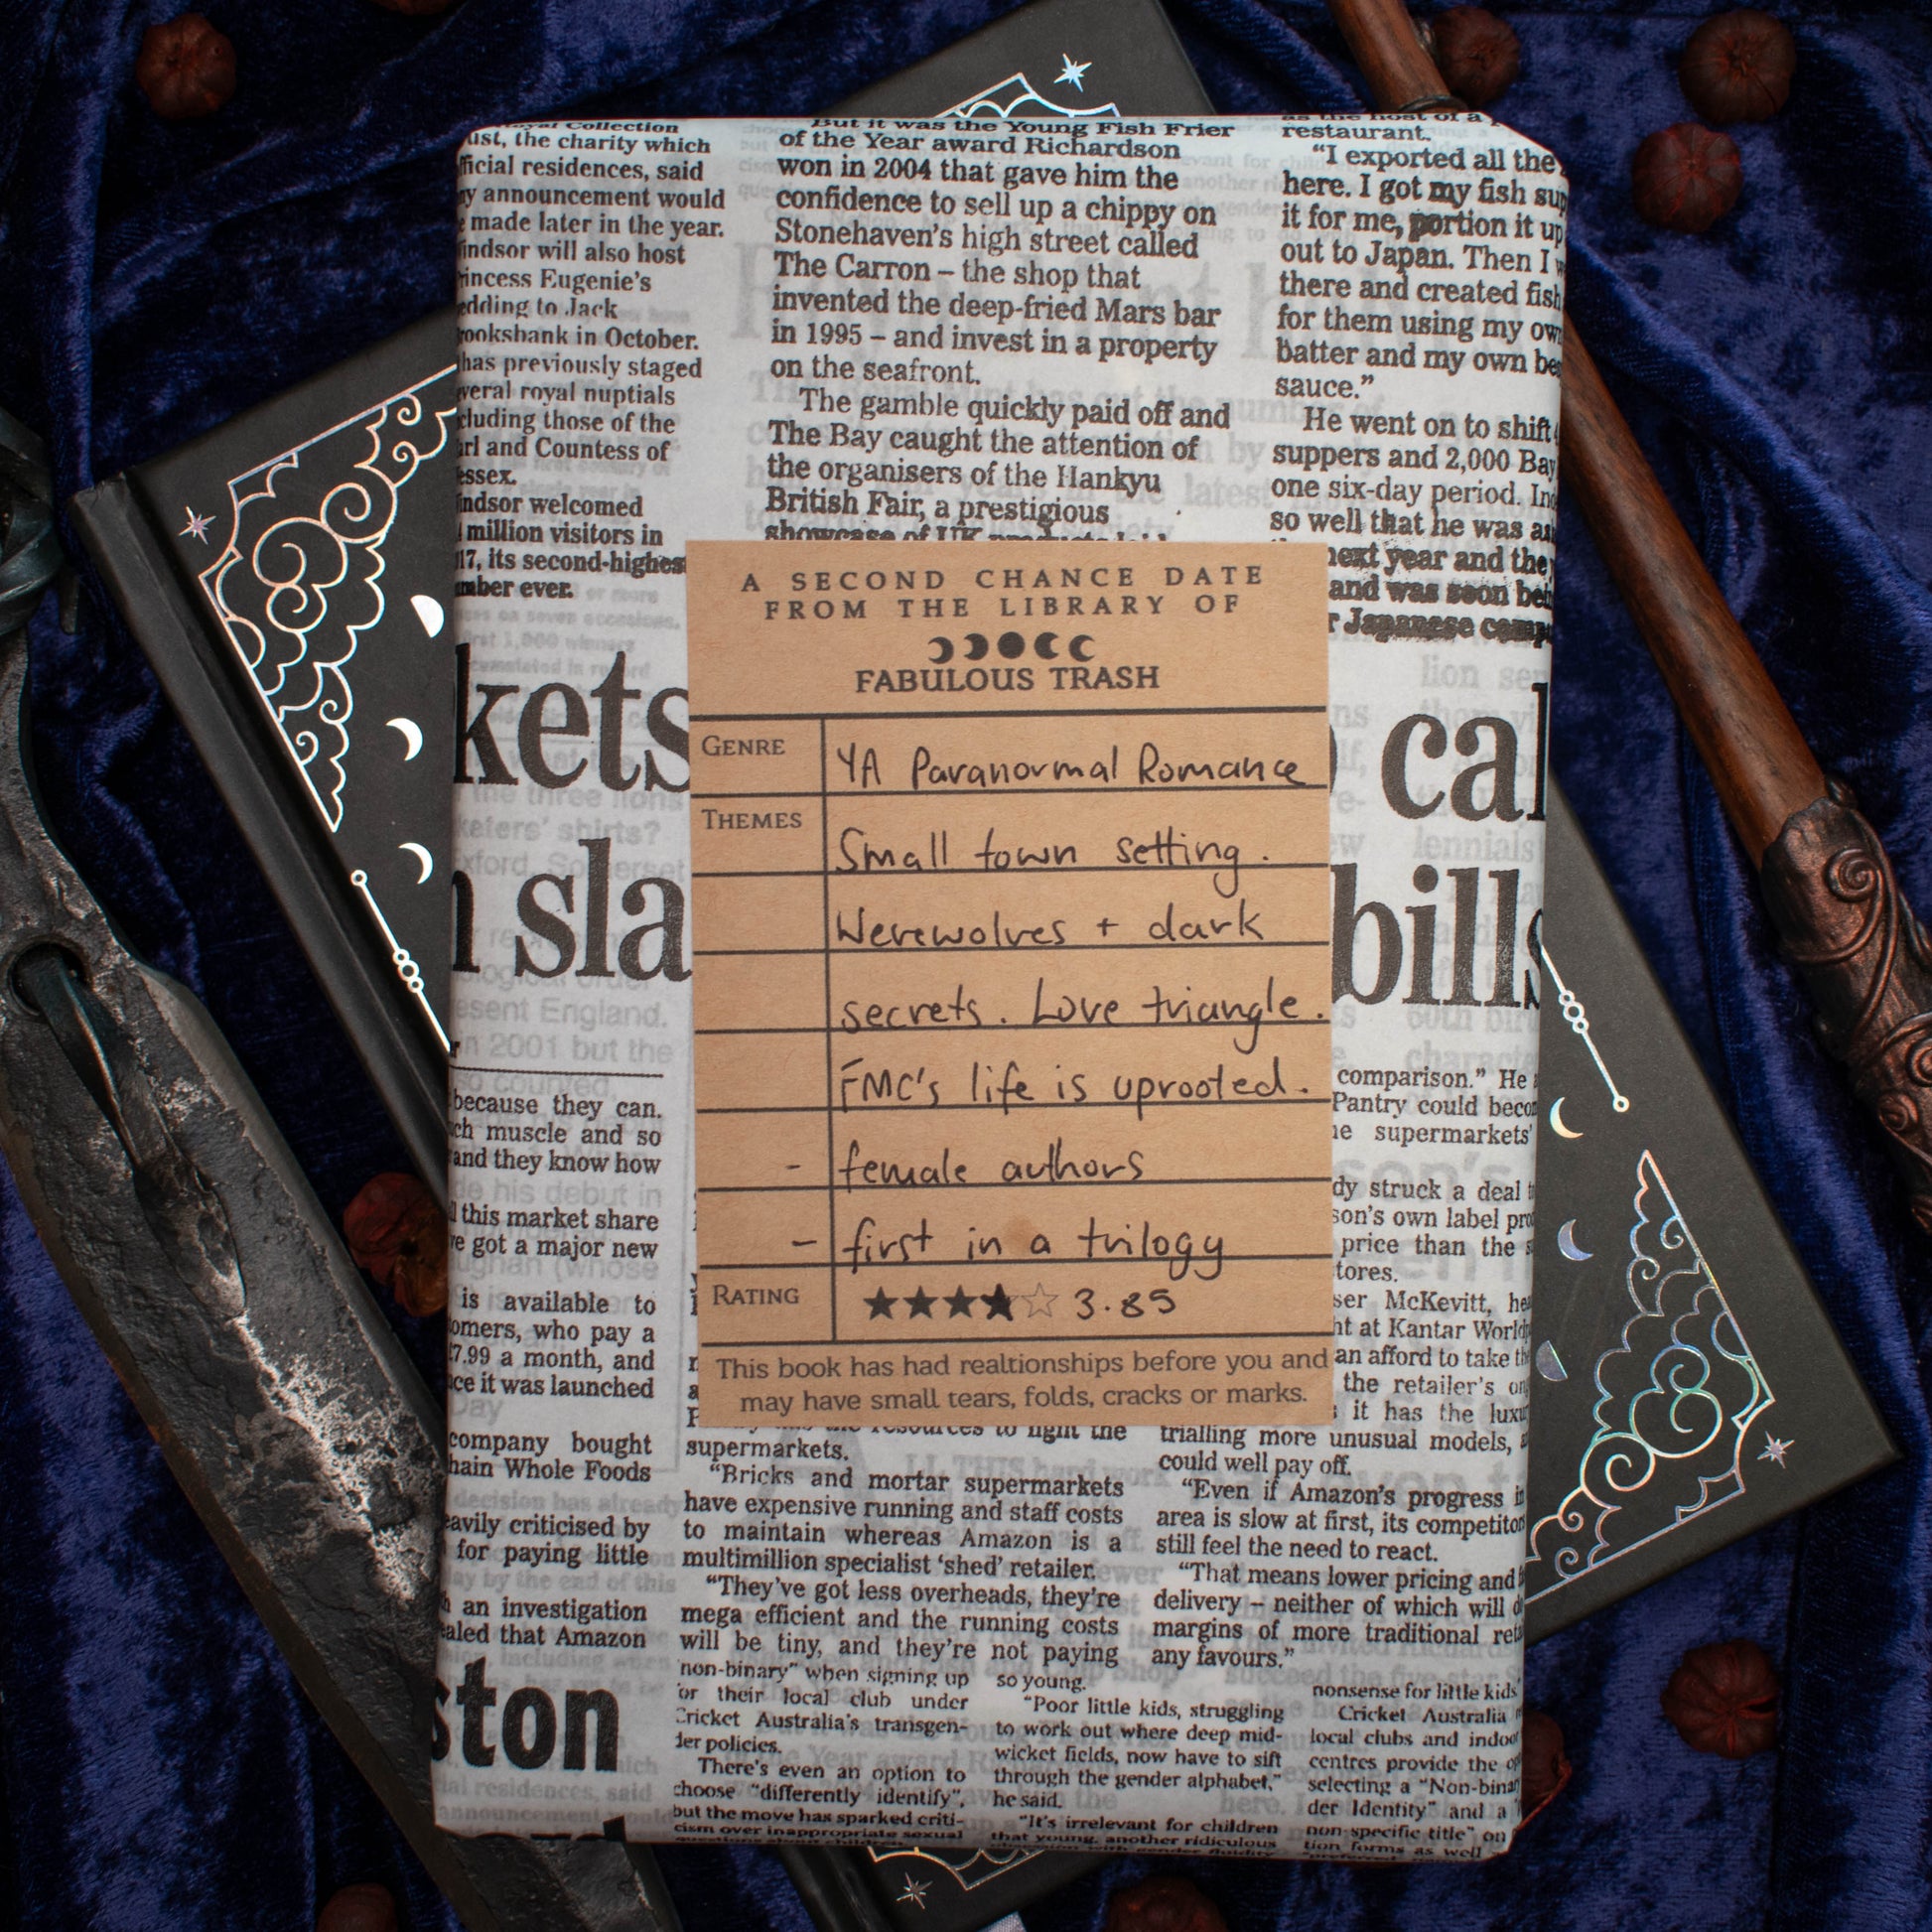 Royal Collection
ust, the charity which
fficial residences, said
y announcement would
made later in the year.
indsor will also host
rincess Eugenie's
edding to Jack
rooksbank in October.
has previously staged
veral royal nuptials
cluding those of the
arl and Countess of
essex.
indsor welcomed
million visitors in
17, its second-highest
umber ever.
But it was the Young Fish Frier
of the Year award Richardson
won in 2004 that gave him the
confidence to sell up a chippy on
Stonehaven's high street called
The Carron – the shop that
invented the deep-fried Mars bar
in 1995 – and invest in a property
on the seafront.
The gamble quickly paid off and
The Bay caught the attention of
the organisers of the Hankyu
British Fair, a prestigious
showcase of UK
as the host of a
restaurant.
"I exported all the
here. I got my fish sup
it for me, portion it up
out to Japan. Then I w
there and created fish
for them using my own
batter and my own be
sauce."
He went on to shift
suppers and 2,000 Bay
one six-day period. In
so well that he was as
next year and the
and was soon be
r Japanese comp
kets
cal
n sla
bills
A SECOND CHANCE DATE
FROM THE LIBRARY OF
FABULOUS TRASH
GENRE YA Paranormal Romance
THEMES Small town setting.
Werewolves + dark
secrets. Love triangle.
FMC's life is uprooted.
- female authors
- first in a trilogy
RATING ★★★★☆ 3.85
This book has had realtionships before you and
may have small tears, folds, cracks or marks.
because they can.
ch muscle and so
and they know how
this market share
ve got a major new
is available to
omers, who pay a
£7.99 a month, and
ce it was launched
company bought
hain Whole Foods
eavily criticised by
for paying little
an investigation
ealed that Amazon
ston
comparison." He
Pantry could becom
he supermarkets'
dy struck a deal
son's own label pro
price than the
tores.
ser McKevitt, hea
ht at Kantar World
an afford to take th
the retailer's on
it has the luxu
resources to fight the
supermarkets.
"Bricks and mortar supermarkets
have expensive running and staff costs
to maintain whereas Amazon is a
multimillion specialist 'shed' retailer.
"They've got less overheads, they're
mega efficient and the running costs
will be tiny, and they're not paying
trialling more unusual models,
could well pay off.
"Even if Amazon's progress in
area is slow at first, its competitor
still feel the need to react.
"That means lower pricing and
delivery – neither of which will d
margins of more traditional reta
any favours."
non-binary" when signing up
or their local club under
Cricket Australia's transgen-
der policies.
There's even an option to
choose "differently identify",
but the move has sparked criti-
cism over inappropriate sexual
questions about children.
so young.
"Poor little kids, struggling
to work out where deep mid-
wicket fields, now have to sift
through the gender alphabet,"
he said.
"It's irrelevant for children
that young, another ridiculous
nonsense for little kids
Cricket Australia
local clubs and indoor
centres provide the op
selecting a "Non-binar
der Identity" and a
non-specific title" on
tion forms as well